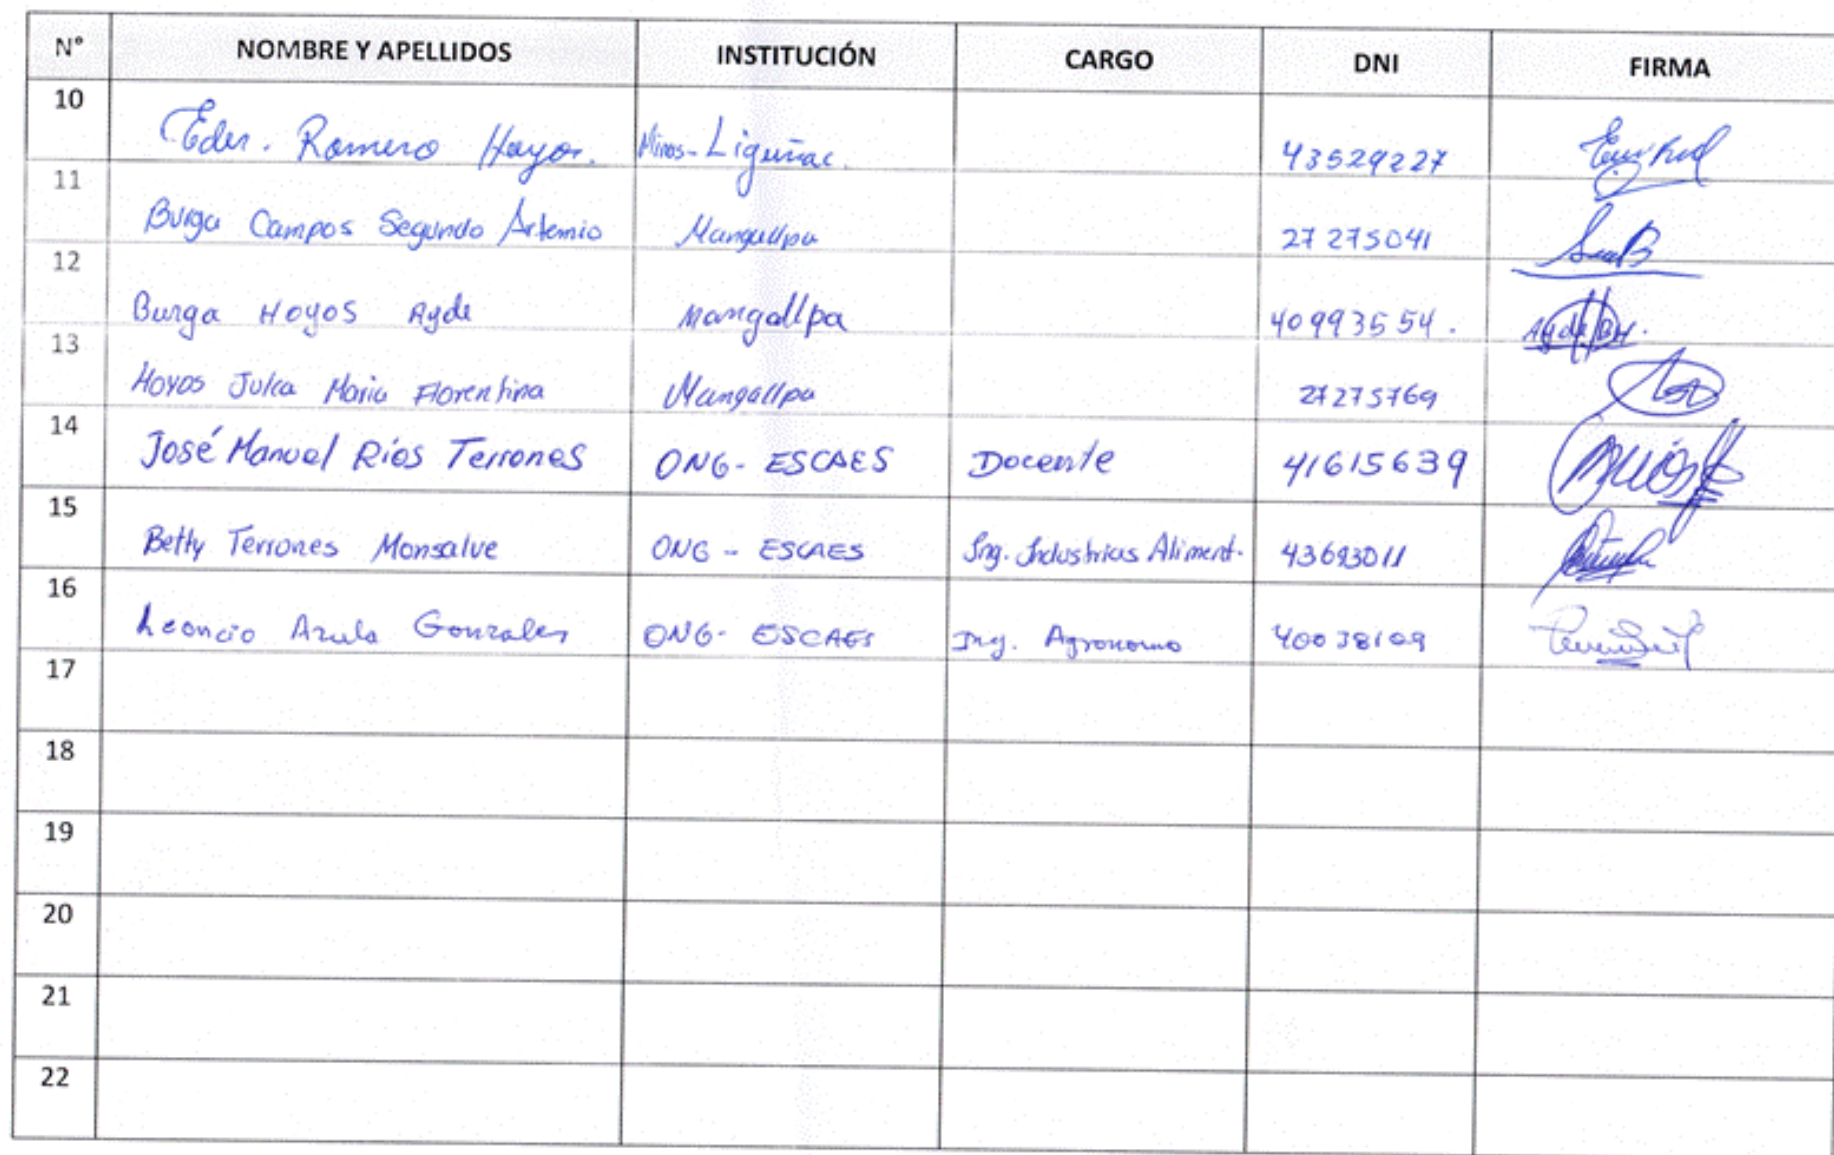 N° NOMBRE Y APELLIDOS INSTITUCIÓN CARGO DNI FIRMA
10 Eder. Romero Hoyos. Minas-Liguñac. 43529227
11 Burga Campos Segundo Artemio Mangallpa 27275041
12 Burga Hoyos Ayde Mangallpa 40993554. Ayde BH.
13 Hoyos Julca Maria Florentina Mangallpa 27275769
14 José Manuel Ríos Terrones ONG- ESCAES Docente 41615639
15 Betty Terrones Monsalve ONG - ESCAES Ing. Industrias Aliment. 43693011
16 Leoncio Azula Gonzales ONG- ESCAES Ing. Agronomo 40038109
17
18
19
20
21
22